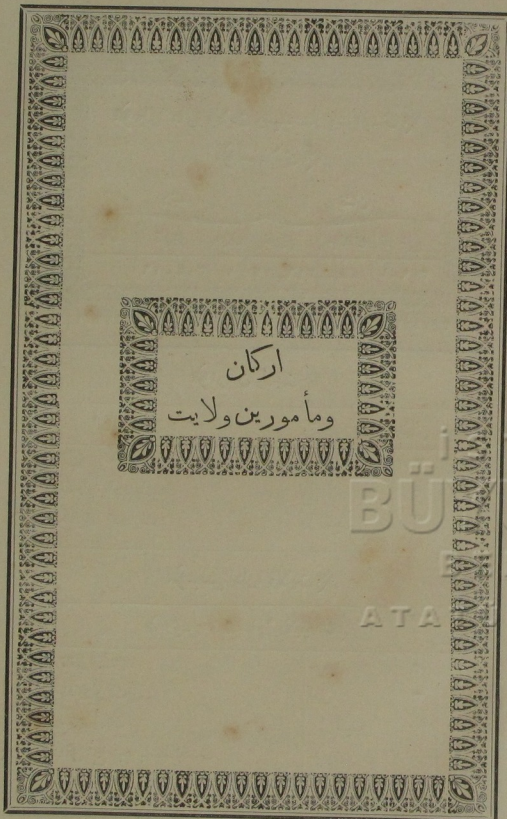 اركان
ومأمورين ولايت
BÜYÜ
ATA